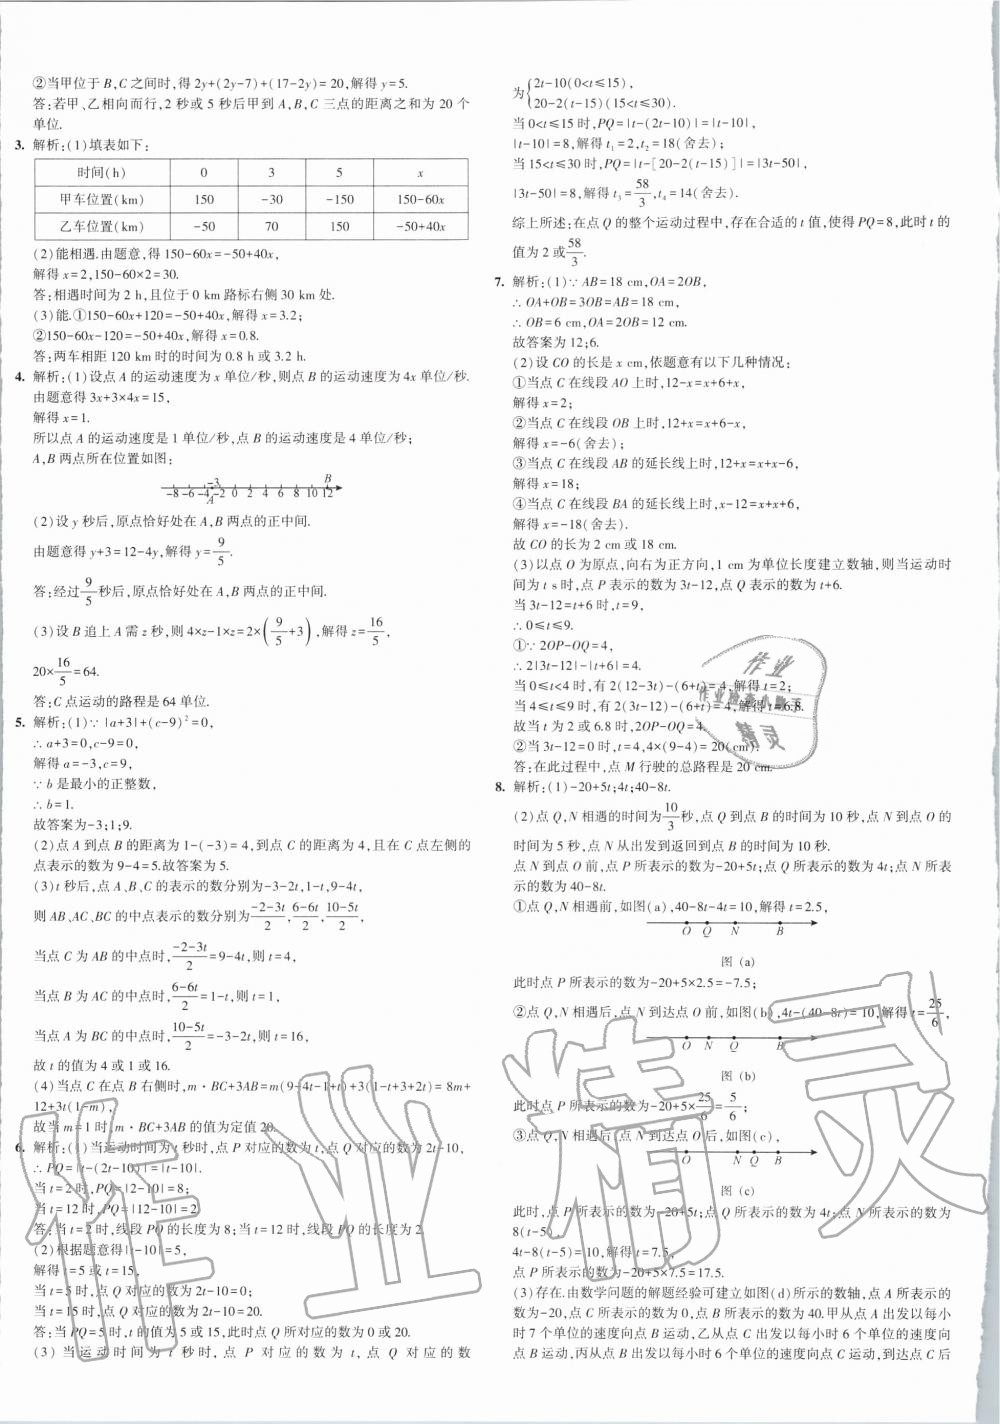 ②当甲位于 B,C 之间时,得 2y+(2y-7)+(17-2y)=20,解得 y=5.
答:若甲、乙相向而行,2 秒或 5 秒后甲到 A,B,C 三点的距离之和为 20 个
单位.
3. 解析:(1)填表如下:
时间(h) 0 3 5 x
甲车位置(km) 150 -30 -150 150-60x
乙车位置(km) -50 70 150 -50+40x
(2)能相遇.由题意,得 150-60x=-50+40x,
解得 x=2,150-60×2=30.
答:相遇时间为 2 h,且位于 0 km 路标右侧 30 km 处.
(3)能.①150-60x+120=-50+40x,解得 x=3.2;
②150-60x-120=-50+40x,解得 x=0.8.
答:两车相距 120 km 时的时间为 0.8 h 或 3.2 h.
4. 解析:(1)设点 A 的运动速度为 x 单位/秒,则点 B 的运动速度为 4x 单位/秒.
由题意得 3x+3×4x=15,
解得 x=1.
所以点 A 的运动速度是 1 单位/秒,点 B 的运动速度是 4 单位/秒;
A,B 两点所在位置如图:
-3 B
-8 -6 -4 -2 0 2 4 6 8 10 12
A
(2)设 y 秒后,原点恰好处在 A,B 两点的正中间.
由题意得 y+3=12-4y,解得 y=9/5.
答:经过9/5秒后,原点恰好处在 A,B 两点的正中间.
(3)设 B 追上 A 需 z 秒,则 4×z-1×z=2×(9/5+3),解得 z=16/5,
20×16/5=64.
答:C 点运动的路程是 64 单位.
5. 解析:(1)∵|a+3|+(c-9)²=0,
∴a+3=0,c-9=0,
解得 a=-3,c=9,
∵b 是最小的正整数,
∴b=1.
故答案为-3;1;9.
(2)点 A 到点 B 的距离为 1-(-3)=4,到点 C 的距离为 4,且在 C 点左侧的
点表示的数为 9-4=5.故答案为 5.
(3)t 秒后,点 A、B、C 的表示的数分别为-3-2t,1-t,9-4t,
则 AB、AC、BC 的中点表示的数分别为(-2-3t)/2,(6-6t)/2,(10-5t)/2,
当点 C 为 AB 的中点时,(-2-3t)/2=9-4t,则 t=4,
当点 B 为 AC 的中点时,(6-6t)/2=1-t,则 t=1,
当点 A 为 BC 的中点时,(10-5t)/2=-3-2t,则 t=16,
故 t 的值为 4 或 1 或 16.
(4)当点 C 在点 B 右侧时,m·BC+3AB=m(9-4t-1+t)+3(1-t+3+2t)=8m+
12+3t(1-m),
故当 m=1 时,m·BC+3AB 的值为定值 20.
6. 解析:(1)当运动时间为 t 秒时,点 P 对应的数为 t,点 Q 对应的数为 2t-10,
∴PQ=|t-(2t-10)|=|t-10|.
当 t=2 时,PQ=|2-10|=8;
当 t=12 时,PQ=|12-10|=2.
答:当 t=2 时,线段 PQ 的长度为 8;当 t=12 时,线段 PQ 的长度为 2.
(2)根据题意得|t-10|=5,
解得 t=5 或 t=15,
当 t=5 时,点 Q 对应的数为 2t-10=0;
当 t=15 时,点 Q 对应的数为 2t-10=20.
答:当 PQ=5 时,t 的值为 5 或 15,此时点 Q 所对应的数为 0 或 20.
(3) 当运动时间为 t 秒时,点 P 对应的数为 t,点 Q 对应的数
为{2t-10(0<t≤15),
20-2(t-15)(15<t≤30).
当 0<t≤15 时,PQ=|t-(2t-10)|=|t-10|,
|t-10|=8,解得 t₁=2,t₂=18(舍去);
当 15<t≤30 时,PQ=|t-[20-2(t-15)]|=|3t-50|,
|3t-50|=8,解得 t₃=58/3,t₄=14(舍去).
综上所述:在点 Q 的整个运动过程中,存在合适的 t 值,使得 PQ=8,此时 t 的
值为 2 或58/3.
7. 解析:(1)∵AB=18 cm,OA=2OB,
∴OA+OB=3OB=AB=18 cm,
∴OB=6 cm,OA=2OB=12 cm.
故答案为 12;6.
(2)设 CO 的长是 x cm,依题意有以下几种情况:
①当点 C 在线段 AO 上时,12-x=x+6+x,
解得 x=2;
②当点 C 在线段 OB 上时,12+x=x+6-x,
解得 x=-6(舍去);
③当点 C 在线段 AB 的延长线上时,12+x=x+x-6,
解得 x=18;
④当点 C 在线段 BA 的延长线上时,x-12=x+x+6,
解得 x=-18(舍去).
故 CO 的长为 2 cm 或 18 cm.
(3)以点 O 为原点,向右为正方向,1 cm 为单位长度建立数轴,则当运动时
间为 t s 时,点 P 表示的数为 3t-12,点 Q 表示的数为 t+6.
当 3t-12=t+6 时,t=9,
∴0≤t≤9.
①∵2OP-OQ=4,
∴2|3t-12|-|t+6|=4.
当 0≤t<4 时,有 2(12-3t)-(6+t)=4,解得 t=2;
当 4≤t≤9 时,有 2(3t-12)-(6+t)=4,解得 t=6.8.
故当 t 为 2 或 6.8 时,2OP-OQ=4.
②当 3t-12=0 时,t=4,4×(9-4)=20(cm).
答:在此过程中,点 M 行驶的总路程是 20 cm.
8. 解析:(1)-20+5t;4t;40-8t.
(2)点 Q,N 相遇的时间为10/3秒,点 Q 到点 B 的时间为 10 秒,点 N 到点 O 的
时间为 5 秒,点 N 从出发到返回到点 B 的时间为 10 秒.
点 N 到点 O 前,点 P 所表示的数为-20+5t;点 Q 所表示的数为 4t;点 N 所表
示的数为 40-8t.
①点 Q,N 相遇前,如图(a),40-8t-4t=10,解得 t=2.5,
O Q N B
图 (a)
此时点 P 所表示的数为-20+5×2.5=-7.5;
②点 Q,N 相遇后,点 N 到达点 O 前,如图(b),4t-(40-8t)=10,解得 t=25/6,
O N Q B
图 (b)
此时点 P 所表示的数为-20+5×25/6=5/6;
③点 Q,N 相遇后,点 N 到达点 O 后,如图(c),
O N Q B
图 (c)
此时,点 P 所表示的数为-20+5t;点 Q 所表示的数为 4t;点 N 所表示的数为
8(t-5).
4t-8(t-5)=10,解得 t=7.5,
点 P 所表示的数为-20+5×7.5=17.5.
(3)存在.由数学问题的解题经验可建立如图(d)所示的数轴,点 A 所表示
的数为-20,点 C 所表示的数为 0,点 B 所表示的数为 40.甲从点 A 出发以每小
时 7 个单位的速度向点 B 运动,乙从点 C 出发以每小时 6 个单位的速度向
点 B 运动,丙从点 B 出发以每小时 6 个单位的速度向点 C 运动,到达点 C 后
作业
作业检查小助手
精灵
作业精灵